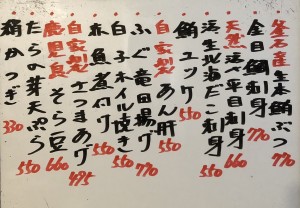 釜石産生本鮪ぶつ 770
金目鯛刺身 770
天然活〆平目刺身 660
浜生北海だこ刺身 550
鮪ユッケ 550
自家製あん肝 550
ふぐ竜田揚げ 770
白子ホイル焼き 550
赤魚煮付け 550
自家製さつまあげ 495
鹿児島そら豆 660
たらの芽天ぷら 550
絹かつぎ 330